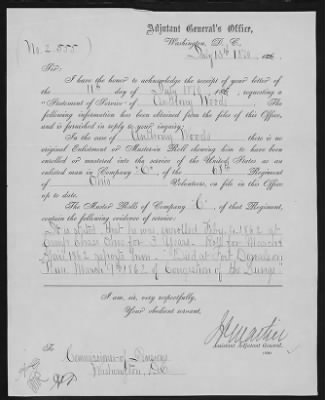 Adjutant General's Office,
Washington, D. C.
(No. 2.555) July 13th 1870, 186 .
Sir:
I have the honor to acknowledge the receipt of your letter of
the 11th day of July 1870, 186 , requesting a
"Statement of Service" of Anthony Woods . The
following information has been obtained from the files of this Office,
and is furnished in reply to your inquiry.
In the case of Anthony Woods there is no
original Enlistment or Muster-in Roll showing him to have been
enrolled or mustered into the service of the United States as an
enlisted man in Company "C", of the 68th Regiment
of Ohio Volunteers, on file in this Office
up to date.
The Muster Rolls of Company "C", of that Regiment,
contain the following evidence of service:
It is stated that he was enrolled Feby 4. 1862 at
Camp Chase Ohio for 3 Years. Roll for March &
April 1862 reports him "Died at Fort Donelson
Tenn. March 7th 1862 of Congestion of the Lungs."
I am, sir, very respectfully,
Your obedient servant,
Assistant Adjutant General.
To
Commissioner of Pensions
Washington, D.C.